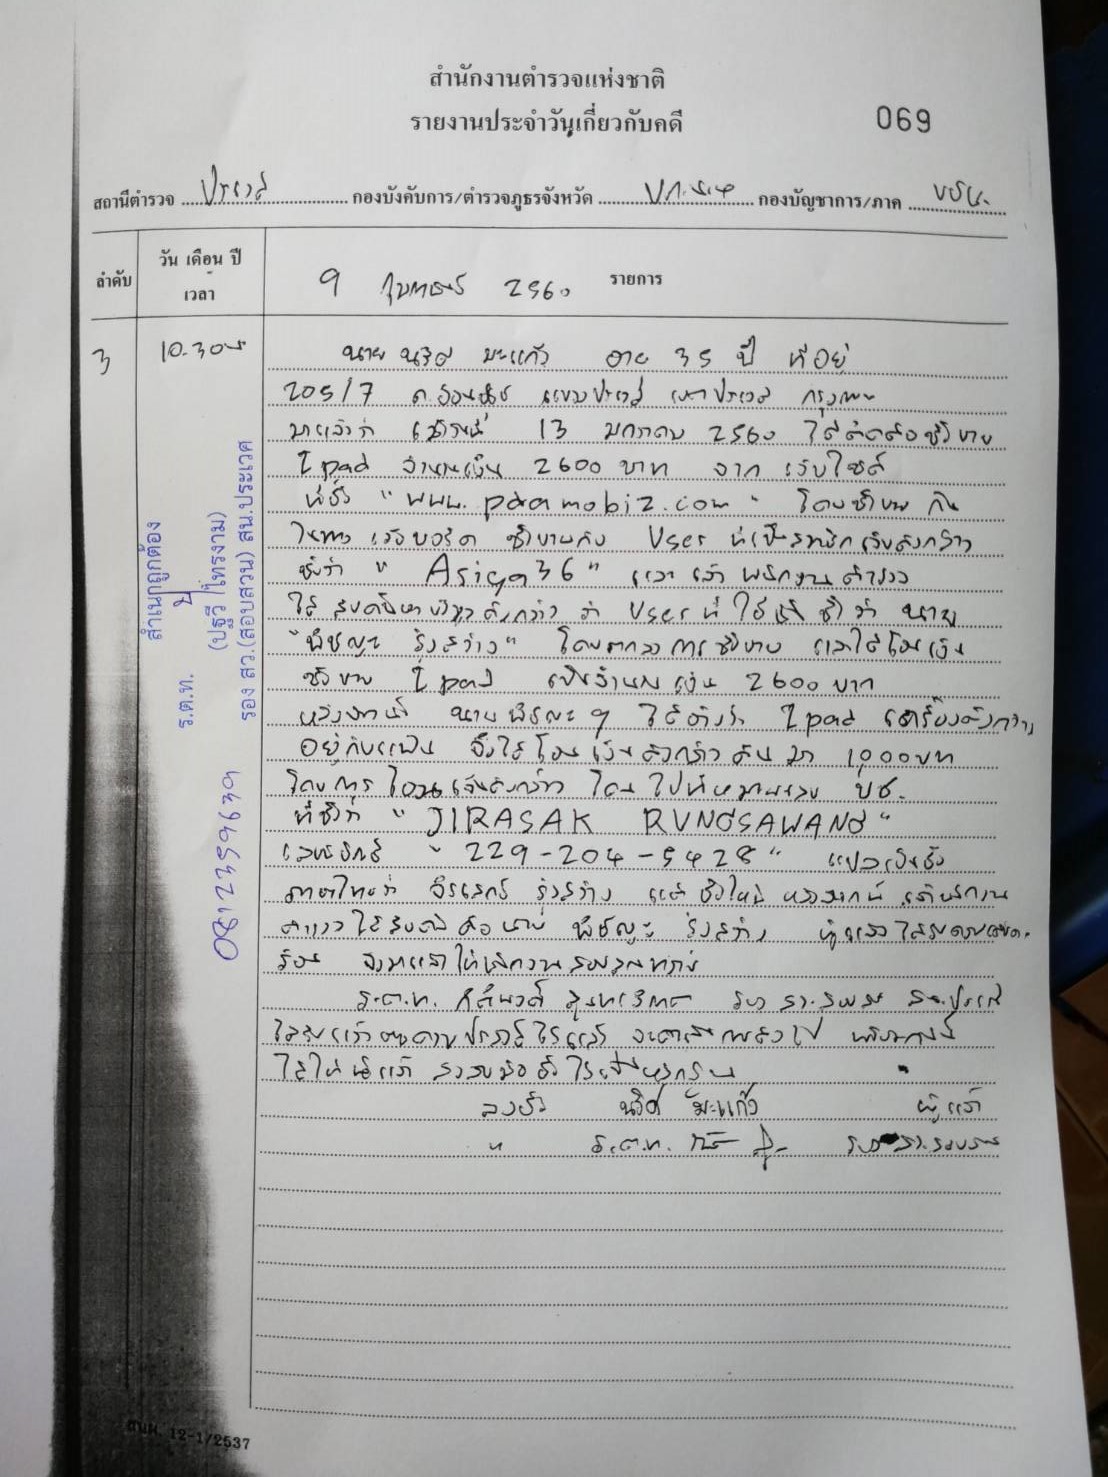 สำนักงานตำรวจแห่งชาติ
รายงานประจำวันเกี่ยวกับคดี
069
สถานีตำรวจ ประเวศ กองบังคับการ/ตำรวจภูธรจังหวัด กองบัญชาการ/ภาค บช.น.
ลำดับ
วัน เดือน ปี
เวลา
9 กุมภาพันธ์ 2560 รายการ
3
10.30 น.
นาย นริศ มะแก้ว อายุ 35 ปี ที่อยู่
205/7 ถ.อ่อนนุช แขวงประเวศ เขตประเวศ กรุงเทพฯ
มาแจ้งว่า เมื่อวันที่ 13 มกราคม 2560 ได้ติดต่อซื้อขาย
Ipad จำนวนเงิน 2600 บาท จาก เว็บไซต์
ที่ชื่อ " www.pdamobiz.com " โดยซื้อขาย กัน
ในทาง เว็บบอร์ด ซื้อขายกับ User ที่เป็นสมาชิกเว็บดังกล่าว
ชื่อว่า " Asiga36 " และ เจ้าพนักงานตำรวจ
ได้ ดังกล่าว ว่า User ที่ใช้ ชื่อว่า นาย
" รุ่งสว่าง" โดยตกลงการซื้อขาย และได้โอนเงิน
ซื้อขาย Ipad เป็นจำนวนเงิน 2600 บาท
หลังจากนี้ นาย ฯ ได้อ้างว่า Ipad เครื่องดังกล่าว
อยู่กับแฟน จึงได้โอนเงินดังกล่าวคืนมา 1,000 บาท
โดยการโอนเงินดังกล่าว โอนไปที่หมายเลข บช.
ที่ชื่อว่า " JIRASAK RUNGSAWANG "
เลขบัญชี " 229-204-5428 " แปลเป็นชื่อ
ภาษาไทยว่า จิรศักดิ์ รุ่งสว่าง หลังจากนี้ เจ้าพนักงาน
ตำรวจได้ คือนาย รุ่งสว่าง ผู้แจ้งได้รับความเดือด
ร้อน จึงมาแจ้งให้พนักงานสอบสวนทราบ
ร.ต.ท. รอง สว.สอบสวน สน.ประเวศ
ได้รับแจ้งตามความประสงค์ไว้แล้ว จะดำเนินการต่อไป
ได้ให้ผู้แจ้ง ลงลายมือชื่อไว้เป็นหลักฐาน
ลงชื่อ นริศ มะแก้ว ผู้แจ้ง
" ร.ต.ท. รอง สว.สอบสวน
สำเนาถูกต้อง
ร.ต.ท.
(ปฐวี ไทรงาม)
รอง สว.(สอบสวน) สน.ประเวศ
0812359639
12-1/2537